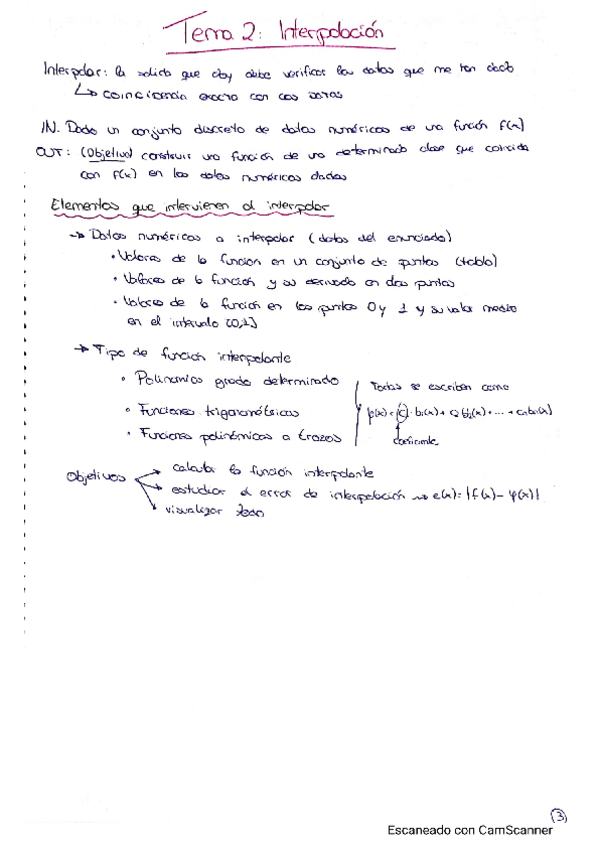 Tema 2: Interpolación
Interpolar: la salida que doy debe verificar los datos que me han dado
↳ coincidencia exacta con los datos
IN. Dado un conjunto discreto de datos numéricos de una función f(x)
OUT: (Objetivo) construir una función de una determinada clase que coincida
con f(x) en los datos numéricos dados
Elementos que intervienen al interpolar
→ Datos numéricos a interpolar (datos del enunciado)
• Valores de la función en un conjunto de puntos (tabla)
• Valores de la función y su derivada en dos puntos
• Valores de la función en los puntos 0 y 1 y su valor medio
en el intervalo [0,1]
→ Tipo de función interpolante
• Polinomios grado determinado
• Funciones trigonométricas
• Funciones polinómicas a trozos
Todas se escriben como
φ(x) = C₁·b₁(x) + C₂ b₂(x) + ... + Cₙbₙ(x)
coeficiente
Objetivos → calcular la función interpolante
→ estudiar el error de interpolación → e(x) = |f(x) - φ(x)|
→ visualizar todo
3
Escaneado con CamScanner